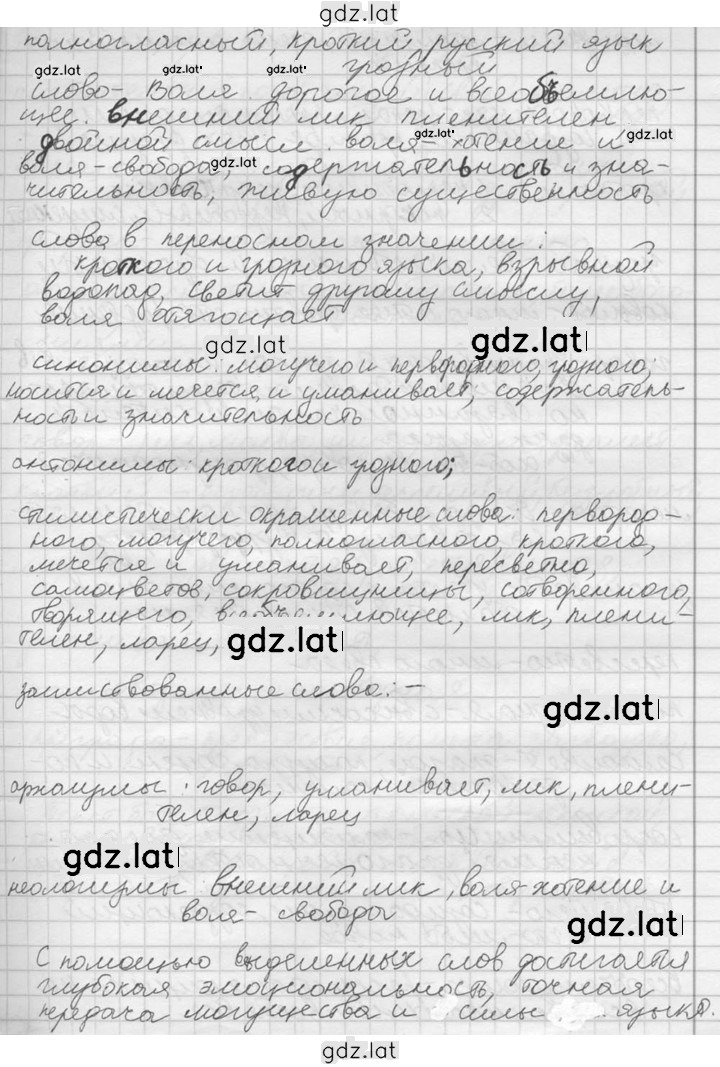 gdz.lat
полногласный, кроткий, русский язык
грозный
gdz.lat gdz.lat gdz.lat
слово- Воля дорогое и всеобъемлю-
щее. внешний лик пленителен
gdz.lat
двойной смысл. воля- хотение и
gdz.lat gdz.lat
воля-свобода, содержательность и зна-
чительность, живую существенность
слова в переносном значении:
кроткого и грозного языка, взрывной
водопад, светит другому смыслу,
воля отягощает
gdz.lat gdz.lat
синонимы: могучего и первородного, грозного;
носится и мечется, и уманивает, содержатель-
ность и значительность
антонимы: кроткого и грозного;
стилистически окрашенные слова: первород-
ного, могучего, полногласного, кроткого,
мечется и уманивает, пересветно,
самоцветов, сокровищницы, сотворенного,
творящего, всеобъемлющее, лик, плени-
телен, ларец,
gdz.lat
заимствованные слова: -
gdz.lat
архаизмы: говор, уманивает, лик, плени-
телен, ларец
gdz.lat
неологизмы: внешний лик, воля-хотение и
воля- свободы
gdz.lat
С помощью выделенных слов достигается
глубокая эмоциональность, точная
передача могущества и силы языка.
gdz.lat